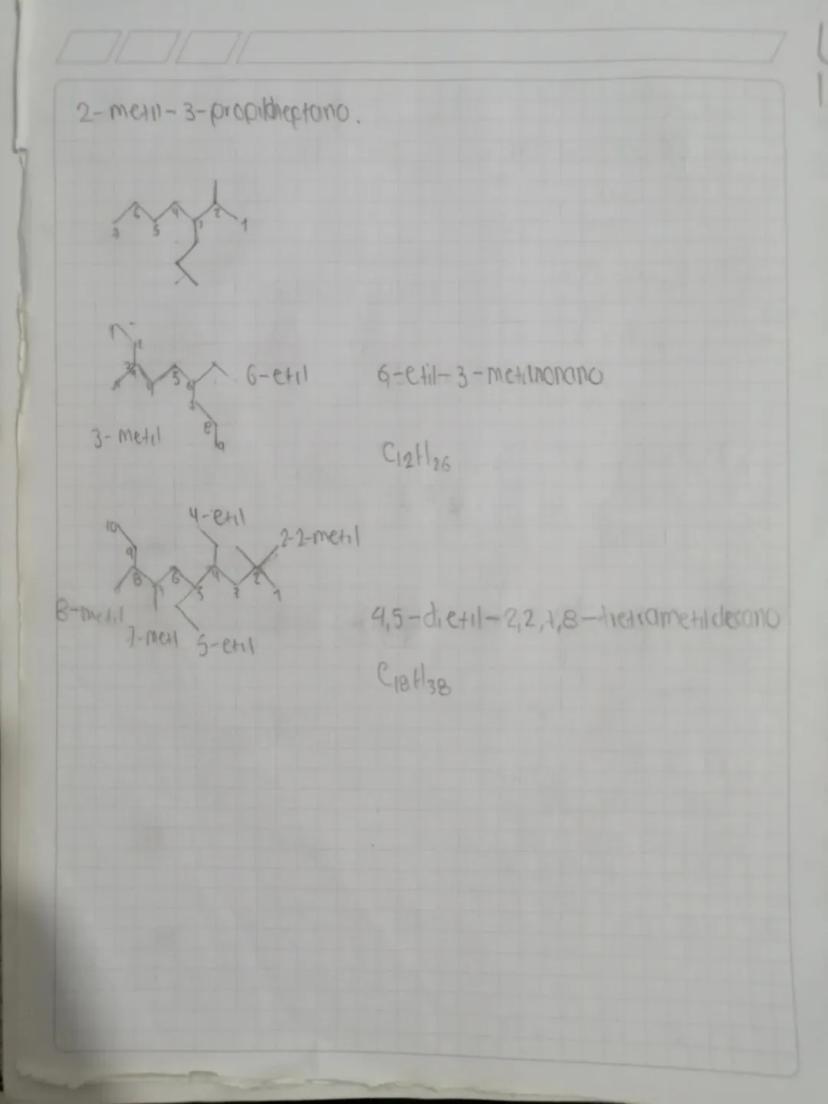 2-metil-3-propilheptano.
7 6 5 4 3 2 1
2
3 4 5 6 6-etil 6-etil-3-metilnonano
7
3-metil 8 9
C12H26
10 4-etil
9 2-2-metil
8 7 6 5 4 3 2 1
8-metil 4,5-dietil-2,2,7,8-tretrametildecano
7-metil 5-etil
C18H38